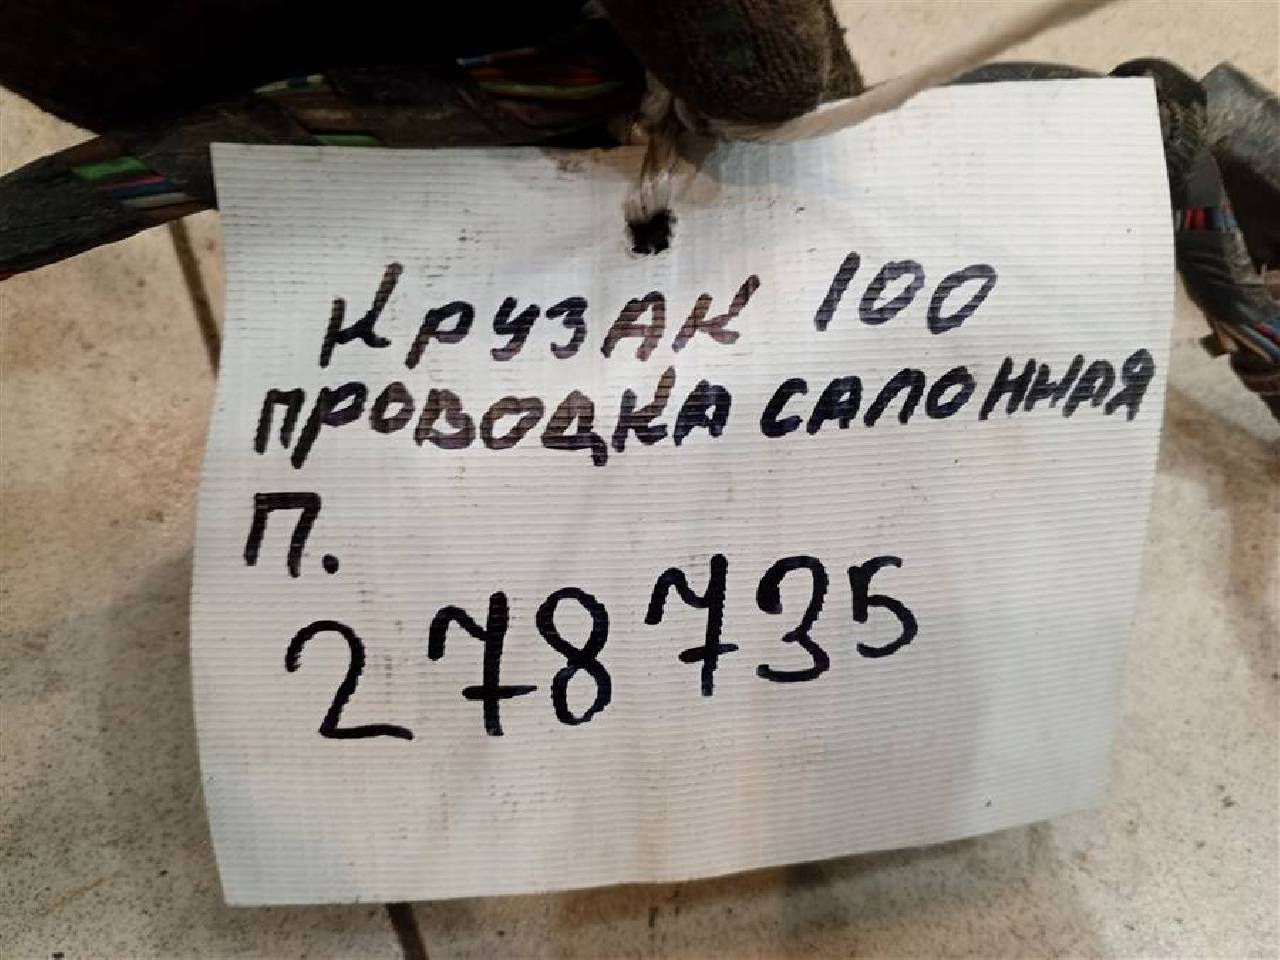 Крузак 100
проводка салонная
П.
278735